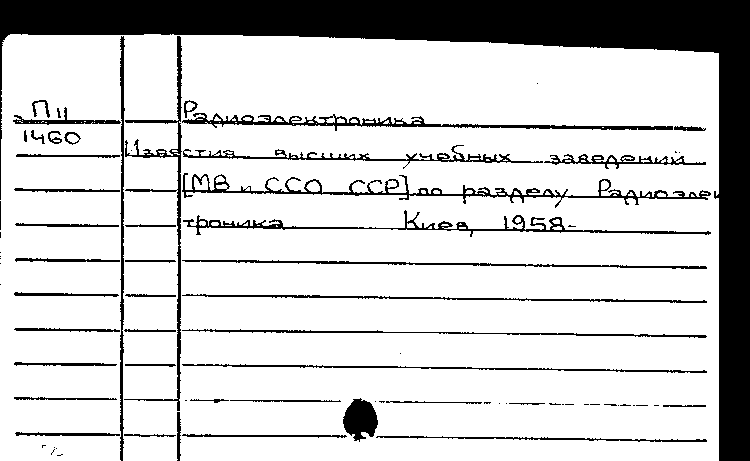 П11 Радиоэлектроника
1460
Известия высших учебных заведений
[МВ и ССО ССР] по разделу Радиоэлек
троника Киев, 1958-